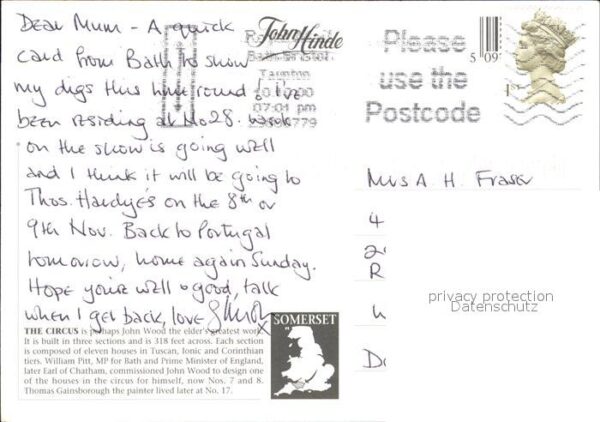 Dear Mum - A quick
card from Bath to show
my digs this time round! I've
been residing at No 28. Work
on the show is going well
and I think it will be going to
Thos. Hardye's on the 8th or
9th Nov. Back to Portugal
tomorrow, home again Sunday.
Hope you're well & good, talk
when I get back, love
John Hinde
Taunton
07-01 pm
Please
use the
Postcode
5 09
1ST
Mrs A. H. Fraser
4
2
R
privacy protection
Datenschutz
D
SOMERSET
THE CIRCUS is perhaps John Wood the elder's greatest work.
It is built in three sections and is 318 feet across. Each section
is composed of eleven houses in Tuscan, Ionic and Corinthian
tiers. William Pitt, MP for Bath and Prime Minister of England,
later Earl of Chatham, commissioned John Wood to design one
of the houses in the circus for himself, now Nos. 7 and 8.
Thomas Gainsborough the painter lived later at No. 17.